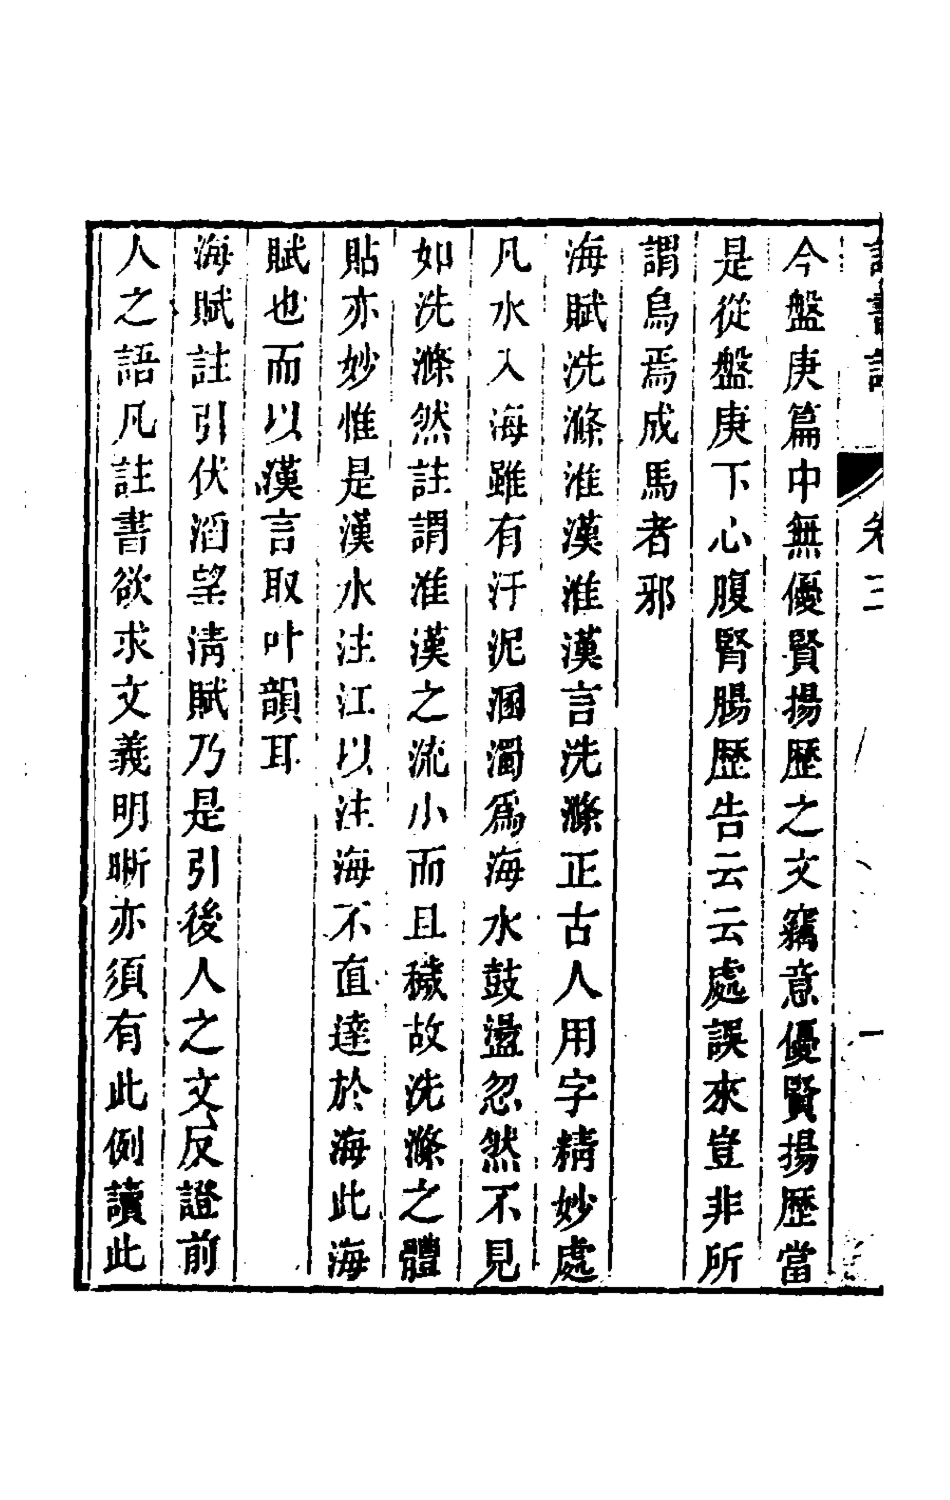 今盤庚篇中無優賢揚歷之文竊意優賢揚歷當
是從盤庚下心腹腎腸歷告云云處誤來豈非所
謂烏焉成馬者邪
海賦洗滌淮漢淮漢言洗滌正古人用字精妙處
凡水入海雖有汙泥溷濁爲海水鼓盪忽然不見
如洗滌然註謂淮漢之流小而且穢故洗滌之體
貼亦妙惟是漢水注江以注海不直達於海此海
賦也而以漢言取叶韻耳
海賦註引伏滔望清賦乃是引後人之文反證前
人之語凡註書欲求文義明晰亦須有此例讀此